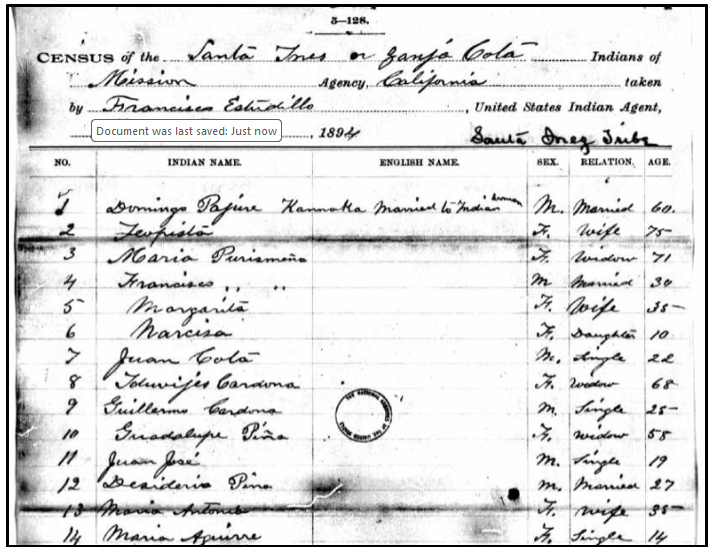 5—128.
CENSUS of the Santa Ines or Zanja Cota Indians of
Mission Agency, California taken
by Francisco Estudillo, United States Indian Agent,
Document was last saved: Just now , 1894 Santa Inez Tribe
NO. INDIAN NAME. ENGLISH NAME. SEX. RELATION. AGE.
1 Domingo Pajure Kannaka Married to Indian woman M. Married 60.
2 Teopista F. Wife 75
3 Maria Purismeña F. Widow 71
4 Francisco " " M Married 30
5 Margarita F. Wife 35
6 Narcisa F. Daughter 10
7 Juan Cota M. Single 22
8 Iduvijes Cardona F. widow 68
9 Guillermo Cardona M. Single 25
10 Guadalupe Piña F. widow 58
11 Juan José M. Single 19
12 Desiderio Pina M. Married 27
13 Maria Antonia F. Wife 35
14 Maria Aguirre F. Single 14